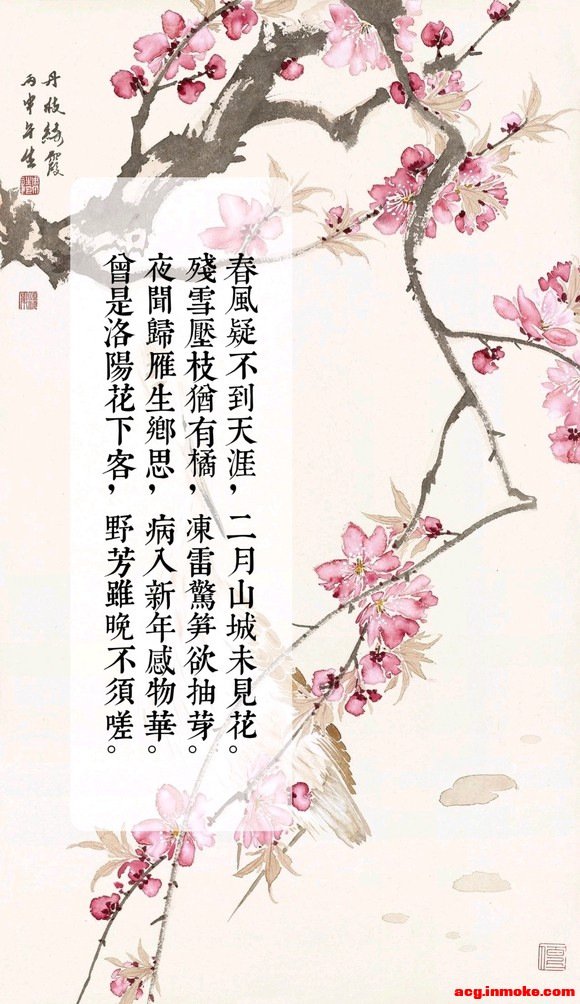 春風疑不到天涯，二月山城未見花。
殘雪壓枝猶有橘，凍雷驚笋欲抽芽。
夜聞歸雁生鄉思，病入新年感物華。
曾是洛陽花下客，野芳雖晚不須嗟。
丹枝綺霞
丙申年生
acg.inmoke.com